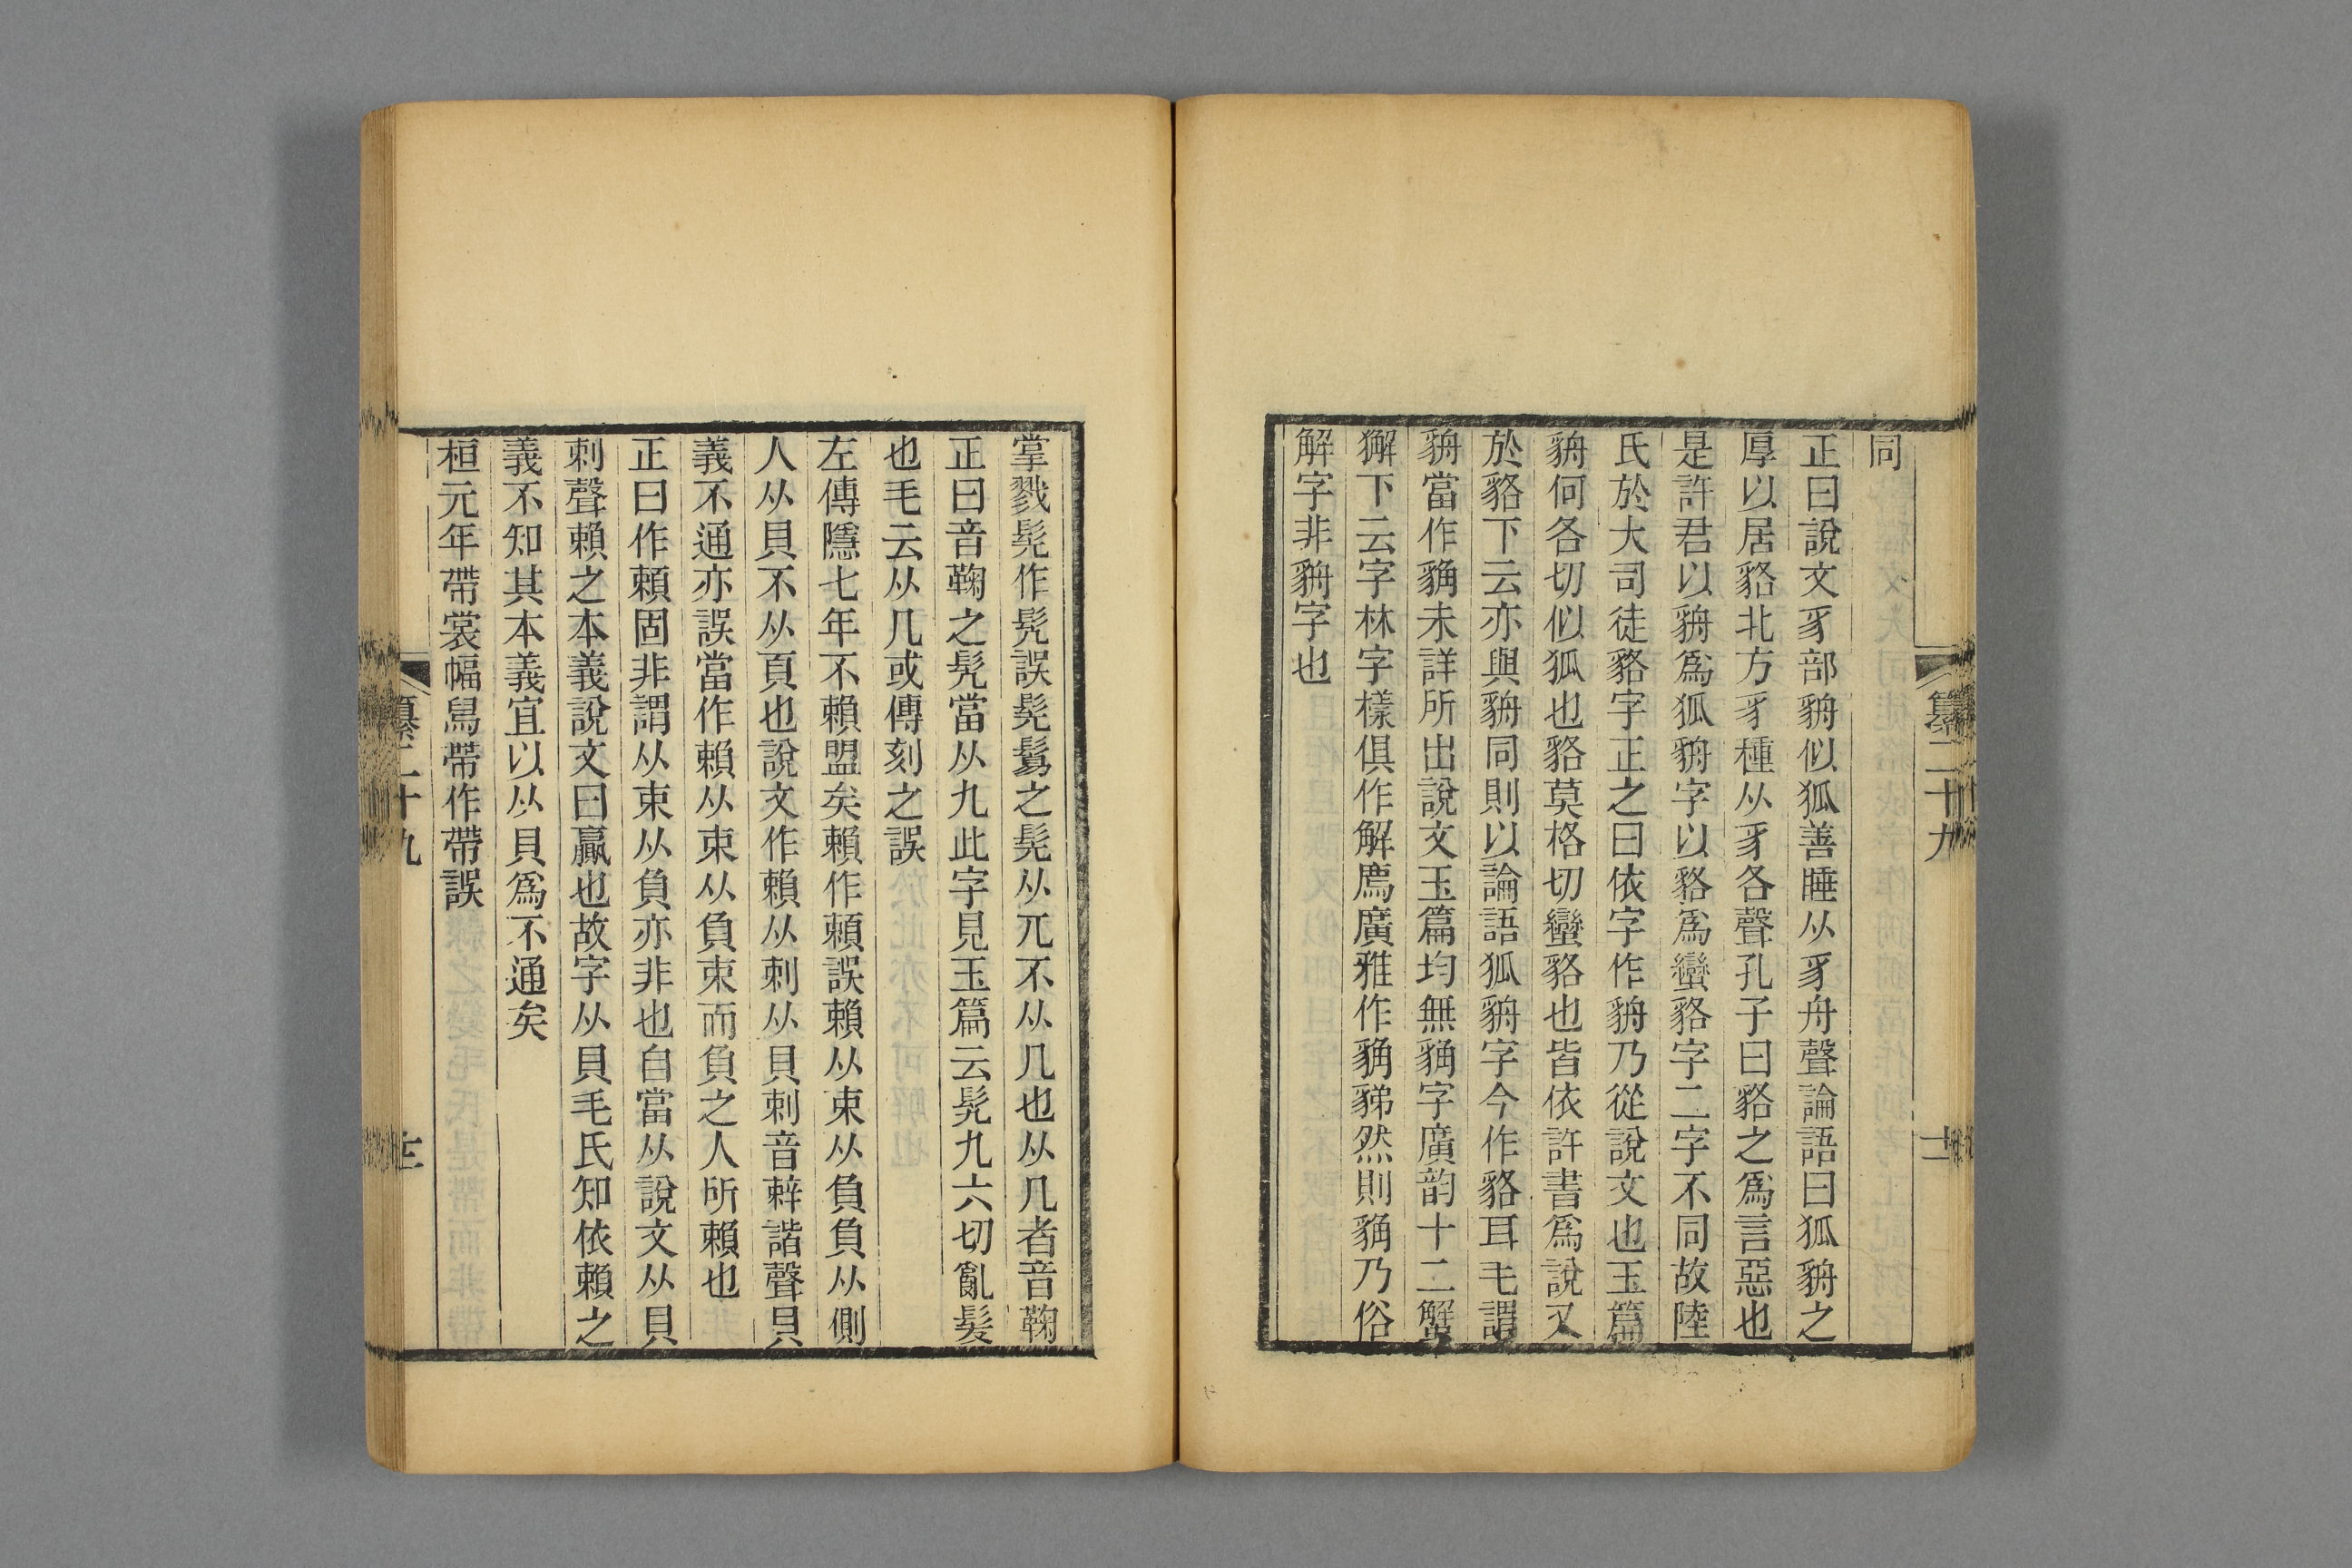 同
正曰說文豸部貈似狐善睡从豸舟聲論語曰狐貈之
厚以居貉北方豸種从豸各聲孔子曰貉之爲言惡也
是許君以貈爲狐貈字以貉爲蠻貉字二字不同故陸
氏於大司徒貉字正之曰依字作貈乃從說文也玉篇
貈何各切似狐也貉莫格切蠻貉也皆依許書爲說又
於貉下云亦與貈同則以論語狐貈字今作貉耳毛謂
貈當作貃未詳所出說文玉篇均無貃字廣韵十二蟹
獬下云字林字樣俱作解廌廣雅作貃豸弟然則貃乃俗
解字非貈字也
纂二十九
十二
掌戮髡作髠誤髡鬄之髡从兀不从几也从几者音鞠
正曰音鞠之髠當从九此字見玉篇云髠九六切亂髮
也毛云从几或傳刻之誤
左傳隱七年不賴盟矣賴作頼誤賴从束从負負从側
人从貝不从頁也說文作賴从剌从貝剌音辢諧聲貝
義不通亦誤當作賴从束从負束而負之人所賴也
正曰作頼固非謂从束从負亦非也自當从說文从貝
剌聲賴之本義說文曰贏也故字从貝毛氏知依賴之
義不知其本義宜以从貝爲不通矣
桓元年帶裳幅舄帶作帶誤
纂二十九